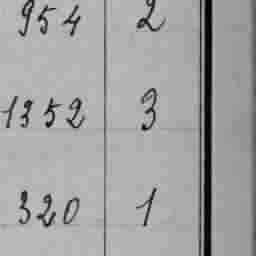 954 2
1352 3
320 1